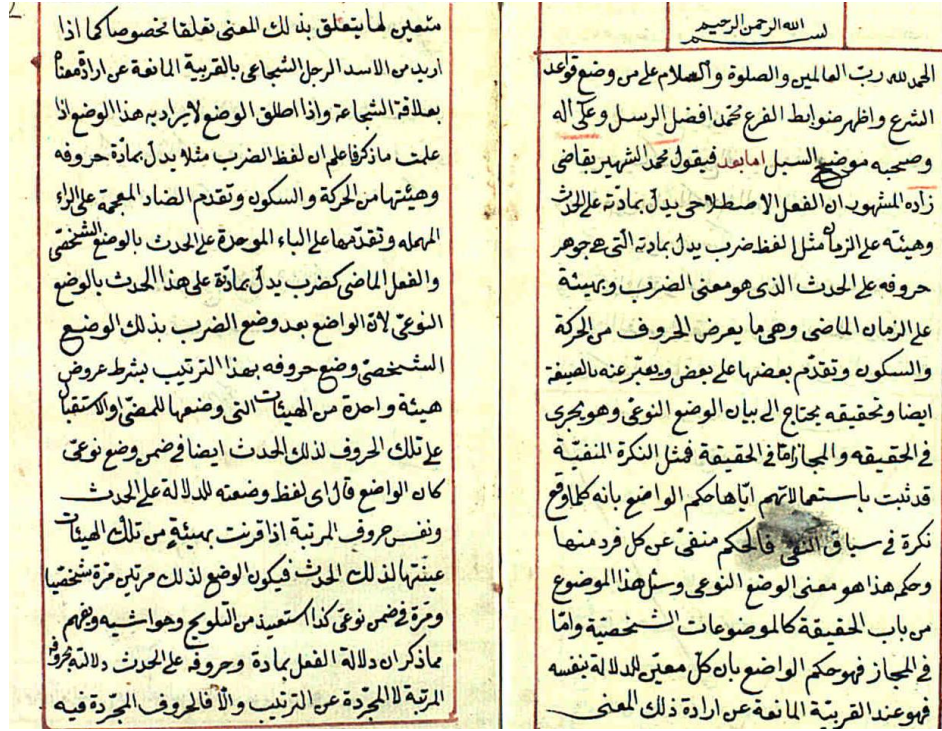 بسم الله الرحمن الرحيم
الحمد لله رب العالمين والصلوة والسلام على من وضع قواعد
الشرع واظهر ضوابط الفرع محمد افضل الرسل وعلى اله
وصحبه موضح السبل اما بعد فيقول محمد الشهير بقاضى
زاده المشهور ان الفعل الاصطلاحى يدلّ بمادته على الحدث
وهيئته على الزمان مثل لفظ ضرب يدل بمادته التى هى جوهر
حروفه على الحدث الذى هو معنى الضرب وبهيئة
على الزمان الماضى وهى ما يعرض للحروف من الحركة
والسكون وتقدّم بعضها على بعض ويعبّر عنه بالصيغة
ايضا وتحقيقه يحتاج الى بيان الوضع النوعى وهو يجرى
فى الحقيقه والمجاز امّا فى الحقيقة فمثل النكرة المنفيّة
قد ثبت باستعمالاتهم ايّاها حكم الواضع بانه كلما وقع
نكرة فى سياق النفى فالحكم منفى عن كل فرد منها
وحكم هذا هو معنى الوضع النوعى ومثل هذا الموضوع
من باب الحقيقة كالموضوعات الشخصيّة وامّا
فى المجاز فهو حكم الواضع بان كلّ معيّن للدلالة بنفسه
فهو عند القرينة المانعة عن ارادة ذلك المعنى
متعين لما يتعلق بذلك المعنى تعلقا مخصوصا كما اذا
اريد من الاسد الرجل الشجاعى بالقرينة المانعة عن ارادة معناه
بعلاقة الشجاعة واذا اطلق الوضع لا يراد به هذا الوضع اذا
علمت ما ذكر فاعلم ان لفظ الضرب مثلا يدلّ بمادة حروفه
وهيئتها من الحركة والسكون وتقدم الضاد المعجمة على الراء
المهمله وتقدّمها على الباء الموحدة على الحدث بالوضع الشخصى
والفعل الماضى كضرب يدلّ بمادّة على هذا الحدث بالوضع
النوعىّ لانّ الواضع بعد وضع الضرب بذلك الوضع
الشخصىّ وضع حروفه بهذا الترتيب بشرط عروض
هيئة واحدة من الهيئات التى وضعها للمضىّ او الاستقبال
على تلك الحروف لذلك الحدث ايضا فى ضمن وضع نوعىّ
كان الواضع قال اى لفظ وضعته للدلالة على الحدث
ونفس حروف المرتبة اذا قرنت بهيئة من تلك الهيئات
عينتها لذلك الحدث فيكون الوضع لذلك مرتين مرة شخصيّا
ومرة فى ضمن نوعىّ كذا استعيذ من التلويح وحواشيه ويفهم
مما ذكر ان دلالة الفعل بمادة وحروفه على الحدث دلالته بحروفه
المرتبة لا المجرّدة عن الترتيب والا فالحروف المجرّدة فيه